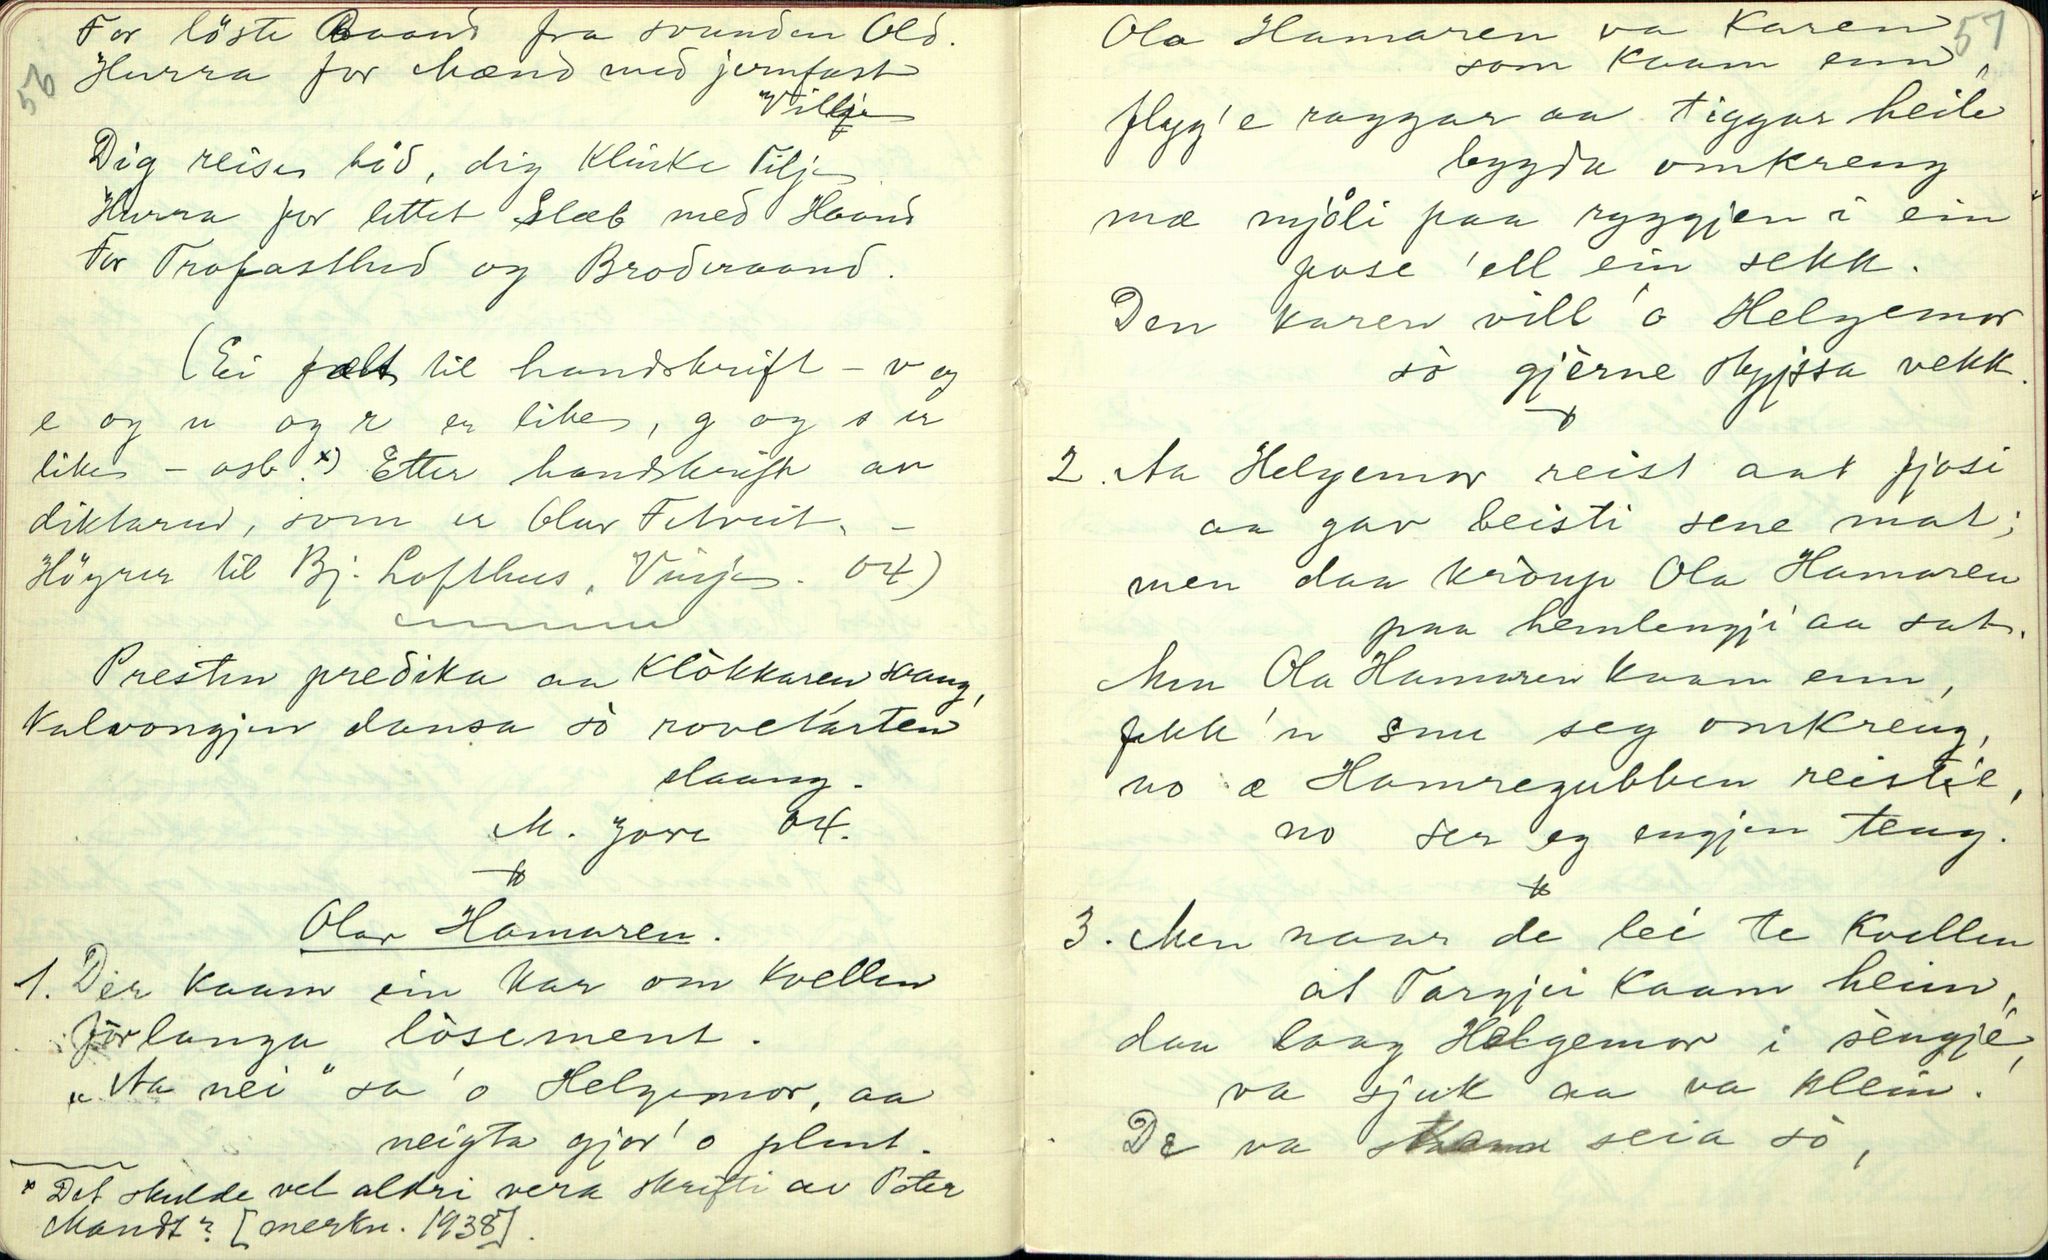 56
For löste Baand fra svunden Old.
Hurra for Mænd med jernfast
Vilje
Dig reises håd, dig Klinke Tilje
Hurra for lettet Slæb med Haand
For Trofasthed og Broderaand.
(Ei fælt til handskrift – v og
e og n og r er like, g og s er
like – osb. x) Etter handskrift av
diktaren, som er Olav Fetveit. –
Höyrer til Bj. Lofthus, Vinje. 04)
Presten predika aa Klòkkaren svang,
Kalvongjen dansa sò rovetarten
slaang.
M. Jore 04.
Olav Hamaren.
1. Dèr kaam ein kar om kvellen
förlanga lòsement.
„Aa nei" sa 'o Helgemor, aa
neigta gjor' o plent.
x Det skulde vel aldri vera skrifti av Peter
Mandt? [merkn. 1938].
57
Ola Hamaren va karen
som kaam enn,
flyg'e raggar aa tiggar heile
bygda omkreng
mæ mjöli paa ryggjen i ein
pose 'ell ein sekk.
Den karen vill 'o Helgemor
sò gjèrne skyssa vekk.
2. Aa Helgemor reist aat fjosi
aa gav beisti sene mat;
men daa kròup Ola Hamaren
paa hemlengji aa sat.
Men Ola Hamaren kaam enn,
fekk 'n snu seg omkreng,
no æ Hamregubben reist'e,
no ser eg engjen teng.
3. Men naar de lei te kvellen
at Targjei kaam heim,
daa laag Helgemor i sèngjé,
va sjuk aa va klein.
De va skamm seia sò,